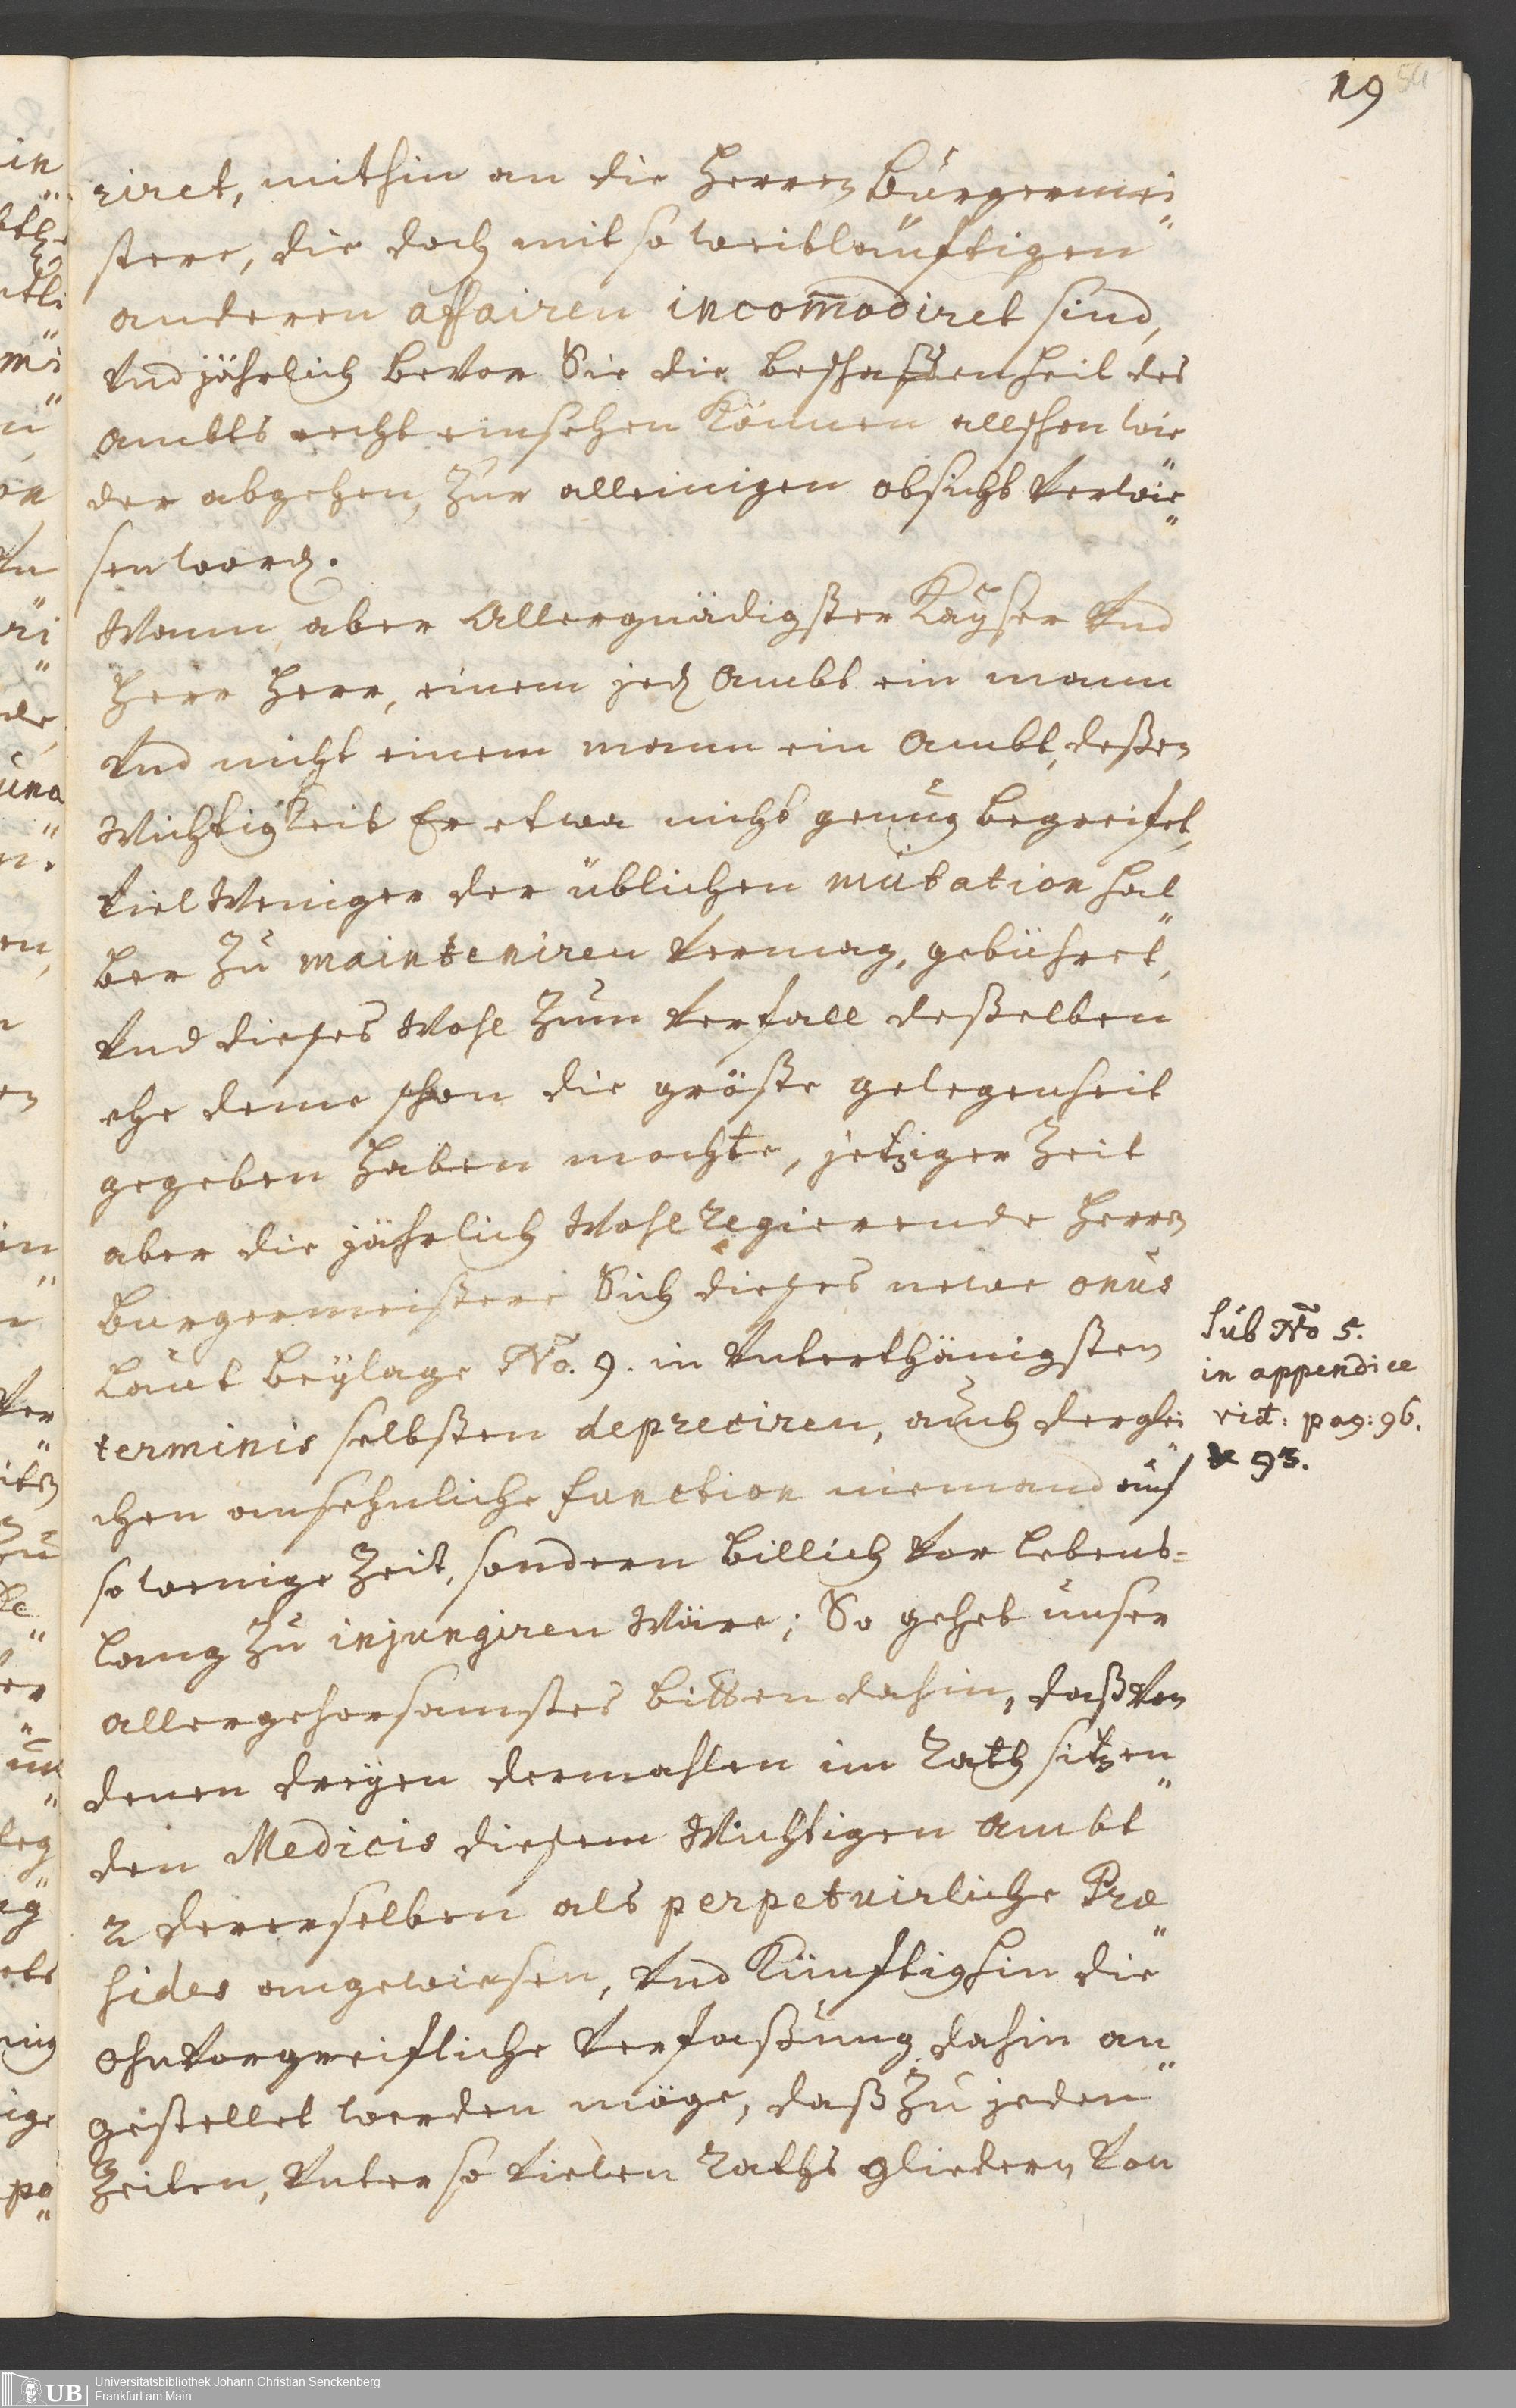 19 54
riret, mithin an die Herren Bürgermei„
stere, die doch mit so weitläuftigen
anderen affairen incom̅odiret sind,
Vnd jährlich bevor Sie die beschaffenheit des
Ambts recht einsehen können allschon wie„
der abgehen, zur alleinigen obsicht verwie„
sen word.
Wann aber Allergnädigster Kayser Vnd
Herr Herr, einem jed Ambt ein mann
Vnd nicht einem mann ein Ambt, deßen
Wichtigkeit Er etwa nicht genug begreifet,
viel Weniger der üblichen mutation hal„
ber zu mainteniren vermag, gebühret,
Vnd dieses Wohl zum verfall deßelben
ehe deme schon die gröste gelegenheit
gegeben haben mochte, jetziger Zeit
aber die jährlich Wohl Regierende Herren
Burgermeistere Sich dieses newe onus
Laut beylage No. 9. in Vnterthänigsten
terminis selbsten depreciren, auch derglei„
chen ansehnliche function niemand auf
so wenige Zeit, sondern billich vor lebens-
lang zu injungiren Wäre; So gehet unser
allergehorsamstes bitten dahin, daß von
denen dreyen dermahlen im Rath sitzen„
den Medicis diesem Wichtigen Ambt
2 dererselben als perpetuirliche Præ„
sides angewiesen, Vnd künftighin die
ohnvorgreifliche Verfaßung dahin an„
gestellet werden möge, daß zu jeden
Zeiten, Vnter so vielen Raths gliedern von
sub No 5.
in appendice
vid: pag: 96.
& 93.
UB
Universitätsbibliothek Johann Christian Senckenberg
Frankfurt am Main